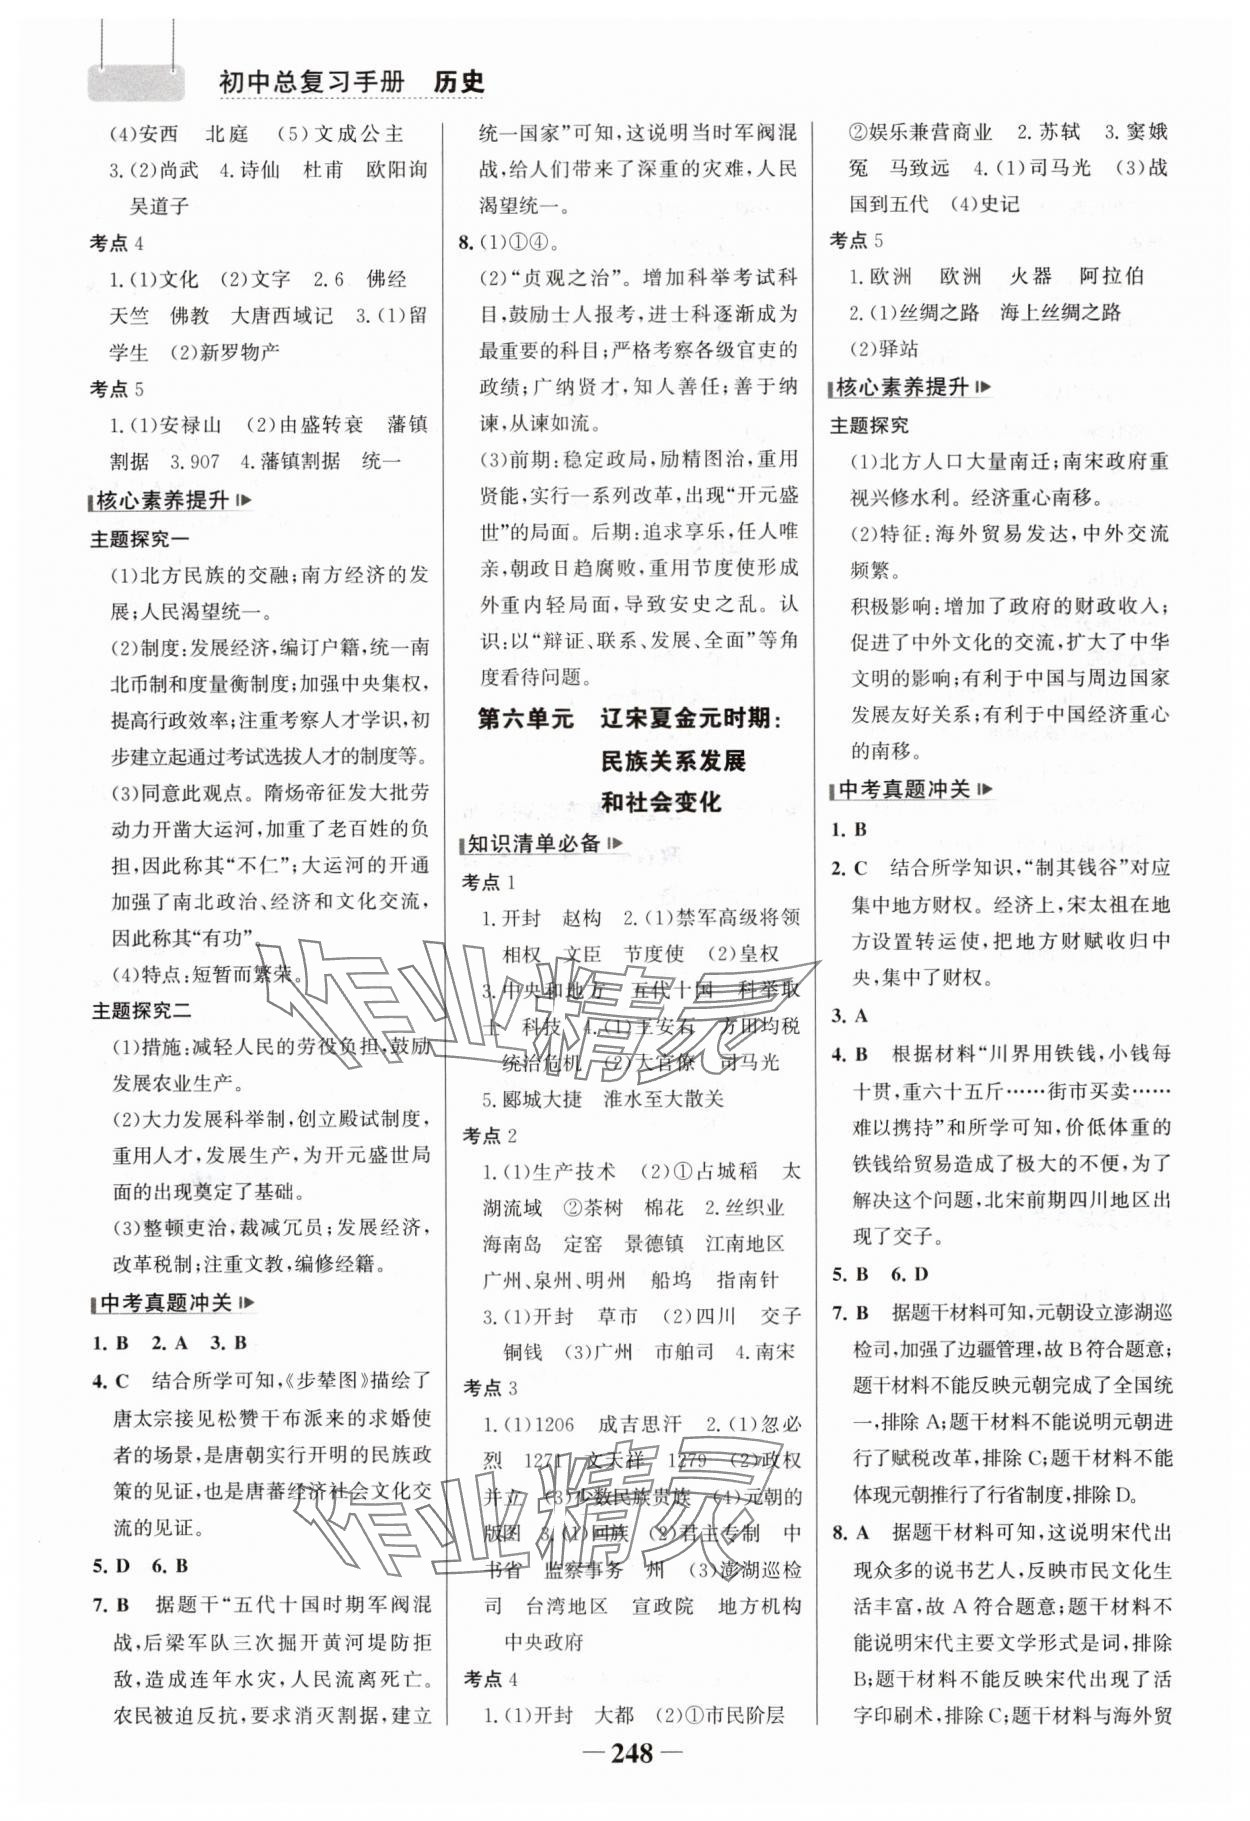 初中总复习手册 历史
(4)安西 北庭 (5)文成公主
3.(2)尚武 4.诗仙 杜甫 欧阳询
吴道子
考点4
1.(1)文化 (2)文字 2.6 佛经
天竺 佛教 大唐西域记 3.(1)留
学生 (2)新罗物产
考点5
1.(1)安禄山 (2)由盛转衰 藩镇
割据 3.907 4.藩镇割据 统一
核心素养提升
主题探究一
(1)北方民族的交融;南方经济的发
展;人民渴望统一。
(2)制度:发展经济,编订户籍,统一南
北币制和度量衡制度;加强中央集权,
提高行政效率;注重考察人才学识,初
步建立起通过考试选拔人才的制度等。
(3)同意此观点。隋炀帝征发大批劳
动力开凿大运河,加重了老百姓的负
担,因此称其“不仁”;大运河的开通
加强了南北政治、经济和文化交流,
因此称其“有功”。
(4)特点:短暂而繁荣。
主题探究二
(1)措施:减轻人民的劳役负担,鼓励
发展农业生产。
(2)大力发展科举制,创立殿试制度,
重用人才,发展生产,为开元盛世局
面的出现奠定了基础。
(3)整顿吏治,裁减冗员;发展经济,
改革税制;注重文教,编修经籍。
中考真题冲关
1. B 2. A 3. B
4. C 结合所学可知,《步辇图》描绘了
唐太宗接见松赞干布派来的求婚使
者的场景,是唐朝实行开明的民族政
策的见证,也是唐蕃经济社会文化交
流的见证。
5. D 6. B
7. B 据题干“五代十国时期军阀混
战,后梁军队三次掘开黄河堤防拒
敌,造成连年水灾,人民流离死亡。
农民被迫反抗,要求消灭割据,建立
统一国家”可知,这说明当时军阀混
战,给人们带来了深重的灾难,人民
渴望统一。
8. (1)①④。
(2)“贞观之治”。增加科举考试科
目,鼓励士人报考,进士科逐渐成为
最重要的科目;严格考察各级官吏的
政绩;广纳贤才,知人善任;善于纳
谏,从谏如流。
(3)前期:稳定政局,励精图治,重用
贤能,实行一系列改革,出现“开元盛
世”的局面。后期:追求享乐,任人唯
亲,朝政日趋腐败,重用节度使形成
外重内轻局面,导致安史之乱。认
识:以“辩证、联系、发展、全面”等角
度看待问题。
第六单元 辽宋夏金元时期:
民族关系发展
和社会变化
知识清单必备
考点1
1.开封 赵构 2.(1)禁军高级将领
相权 文臣 节度使 (2)皇权
3.中央和地方 五代十国 科举取
士 科技 4.(1)王安石 方田均税
统治危机 (2)大官僚 司马光
5.郾城大捷 淮水至大散关
考点2
1.(1)生产技术 (2)①占城稻 太
湖流域 ②茶树 棉花 2.丝织业
海南岛 定窑 景德镇 江南地区
广州、泉州、明州 船坞 指南针
3.(1)开封 草市 (2)四川 交子
铜钱 (3)广州 市舶司 4.南宋
考点3
1.(1)1206 成吉思汗 2.(1)忽必
烈 1271 文天祥 1279 (2)政权
并立 (3)少数民族贵族 (4)元朝的
版图 3.(1)回族 (2)君主专制 中
书省 监察事务 州 (3)澎湖巡检
司 台湾地区 宣政院 地方机构
中央政府
考点4
1.(1)开封 大都 (2)①市民阶层
②娱乐兼营商业 2.苏轼 3.窦娥
冤 马致远 4.(1)司马光 (3)战
国到五代 (4)史记
考点5
1.欧洲 欧洲 火器 阿拉伯
2.(1)丝绸之路 海上丝绸之路
(2)驿站
核心素养提升
主题探究
(1)北方人口大量南迁;南宋政府重
视兴修水利。经济重心南移。
(2)特征:海外贸易发达,中外交流
频繁。
积极影响:增加了政府的财政收入;
促进了中外文化的交流,扩大了中华
文明的影响;有利于中国与周边国家
发展友好关系;有利于中国经济重心
的南移。
中考真题冲关
1. B
2. C 结合所学知识,“制其钱谷”对应
集中地方财权。经济上,宋太祖在地
方设置转运使,把地方财赋收归中
央,集中了财权。
3. A
4. B 根据材料“川界用铁钱,小钱每
十贯,重六十五斤……街市买卖……
难以携持”和所学可知,价低体重的
铁钱给贸易造成了极大的不便,为了
解决这个问题,北宋前期四川地区出
现了交子。
5. B 6. D
7. B 据题干材料可知,元朝设立澎湖巡
检司,加强了边疆管理,故B符合题意;
题干材料不能反映元朝完成了全国统
一,排除A;题干材料不能说明元朝进
行了赋税改革,排除C;题干材料不能
体现元朝推行了行省制度,排除D。
8. A 据题干材料可知,这说明宋代出
现众多的说书艺人,反映市民文化生
活丰富,故A符合题意;题干材料不
能说明宋代主要文学形式是词,排除
B;题干材料不能反映宋代出现了活
字印刷术,排除C;题干材料与海外贸
— 248 —
作业精灵
作业精灵